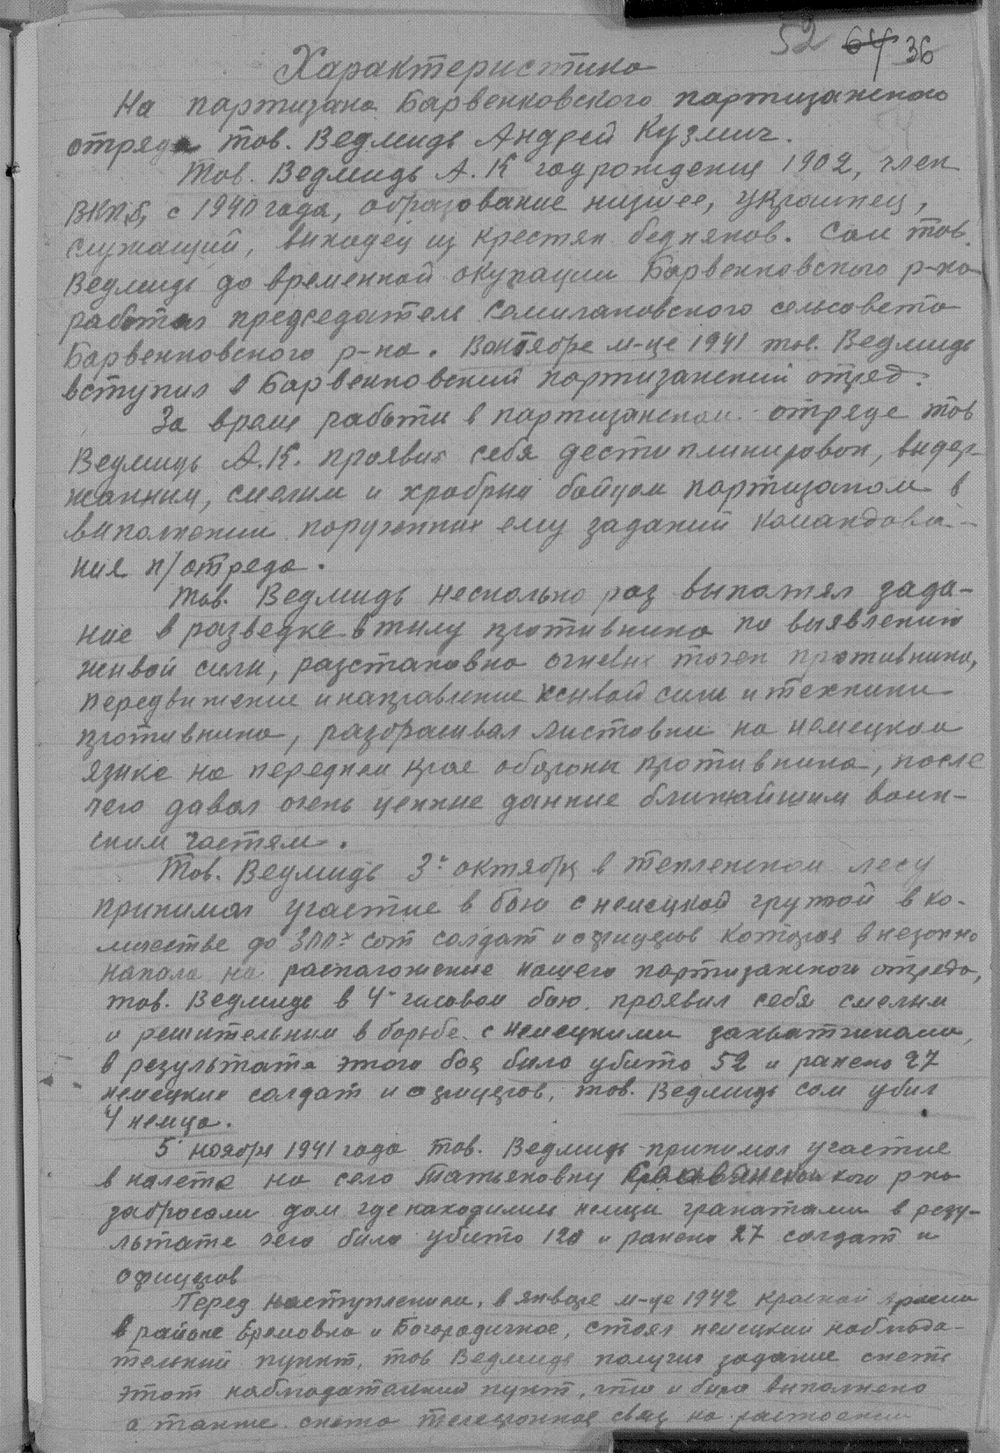 52 64 36
Характеристика
На партизана Барвенковского партизанского
отряда тов. Ведмидь Андрей Кузмич.
Тов. Ведмидь А. К год рождения 1902, член
ВКПб, с 1940 года, образование низшее, украинец,
служащий, выходец из крестян бедняков. Сам тов.
Ведмидь до временной окупации Барвенковского р-на
работал председателе Семилановского сельсовета
Барвенковского р-на. Воктябре м-це 1941 тов. Ведмидь
вступил в Барвенковский партизанский отряд.
За время работи в партизанском отряде тов
Ведмидь А.К. проявил себя дестиплинирован, видер-
жанним, смелим и храбрим бойцом партизаном в
виполнении поручених ему заданий командова-
ния п/отряда.
Тов. Ведмидь несколько раз выполнял зада-
ние в разведке в тилу противника по выявлению
живой сили, разстановка огневих точек противника,
передвижение и направление живой сили и техники
противника, разбрасивал листовки на немецком
язике на переднем крае обороны противника, после
чего давал очень ценние данние ближайшим воин-
ским частям.
Тов. Ведмидь 3го октября в тепленском лесу
принимал участие в бою с немецкой групой в ко-
личестве до 300х сот солдат и офицеров которая внезапно
напала на расположение нашего партизанского отряда,
тов. Ведмидь в 4х часовом бою проявил себя смелим
и решительним в борьбе с немецкими захватчиками,
в результате этого боя било убито 52 и ранено 27
немецких солдат и офицеров, тов. Ведмидь сам убил
4 немца.
5 ноября 1941 года тов. Ведмидь принимал участие
в налете на село Татьяновку Славянского р-на
забросали дом где находились немци гранатами в резу-
льтате чего било убито 120 и ранено 27 солдат и
офицеров
Перед наступлением, в январе м-це 1942 красной армии
в районе Еремовка и Богородичное, стоял немецкий наблюда-
тельний пункт, тов Ведмидь получил задание снять
этот наблюдательний пункт, что и било выполнено
а также снята телефонная связ на растоянии